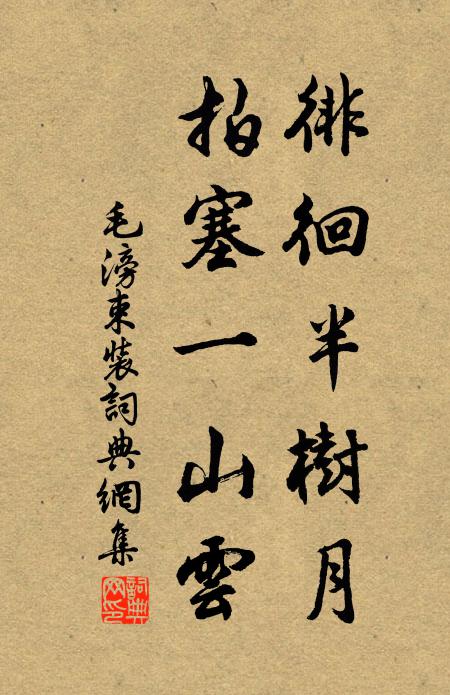 徘徊半樹月
拍塞一山雲
毛滂束裝詞典網集
詞典网印